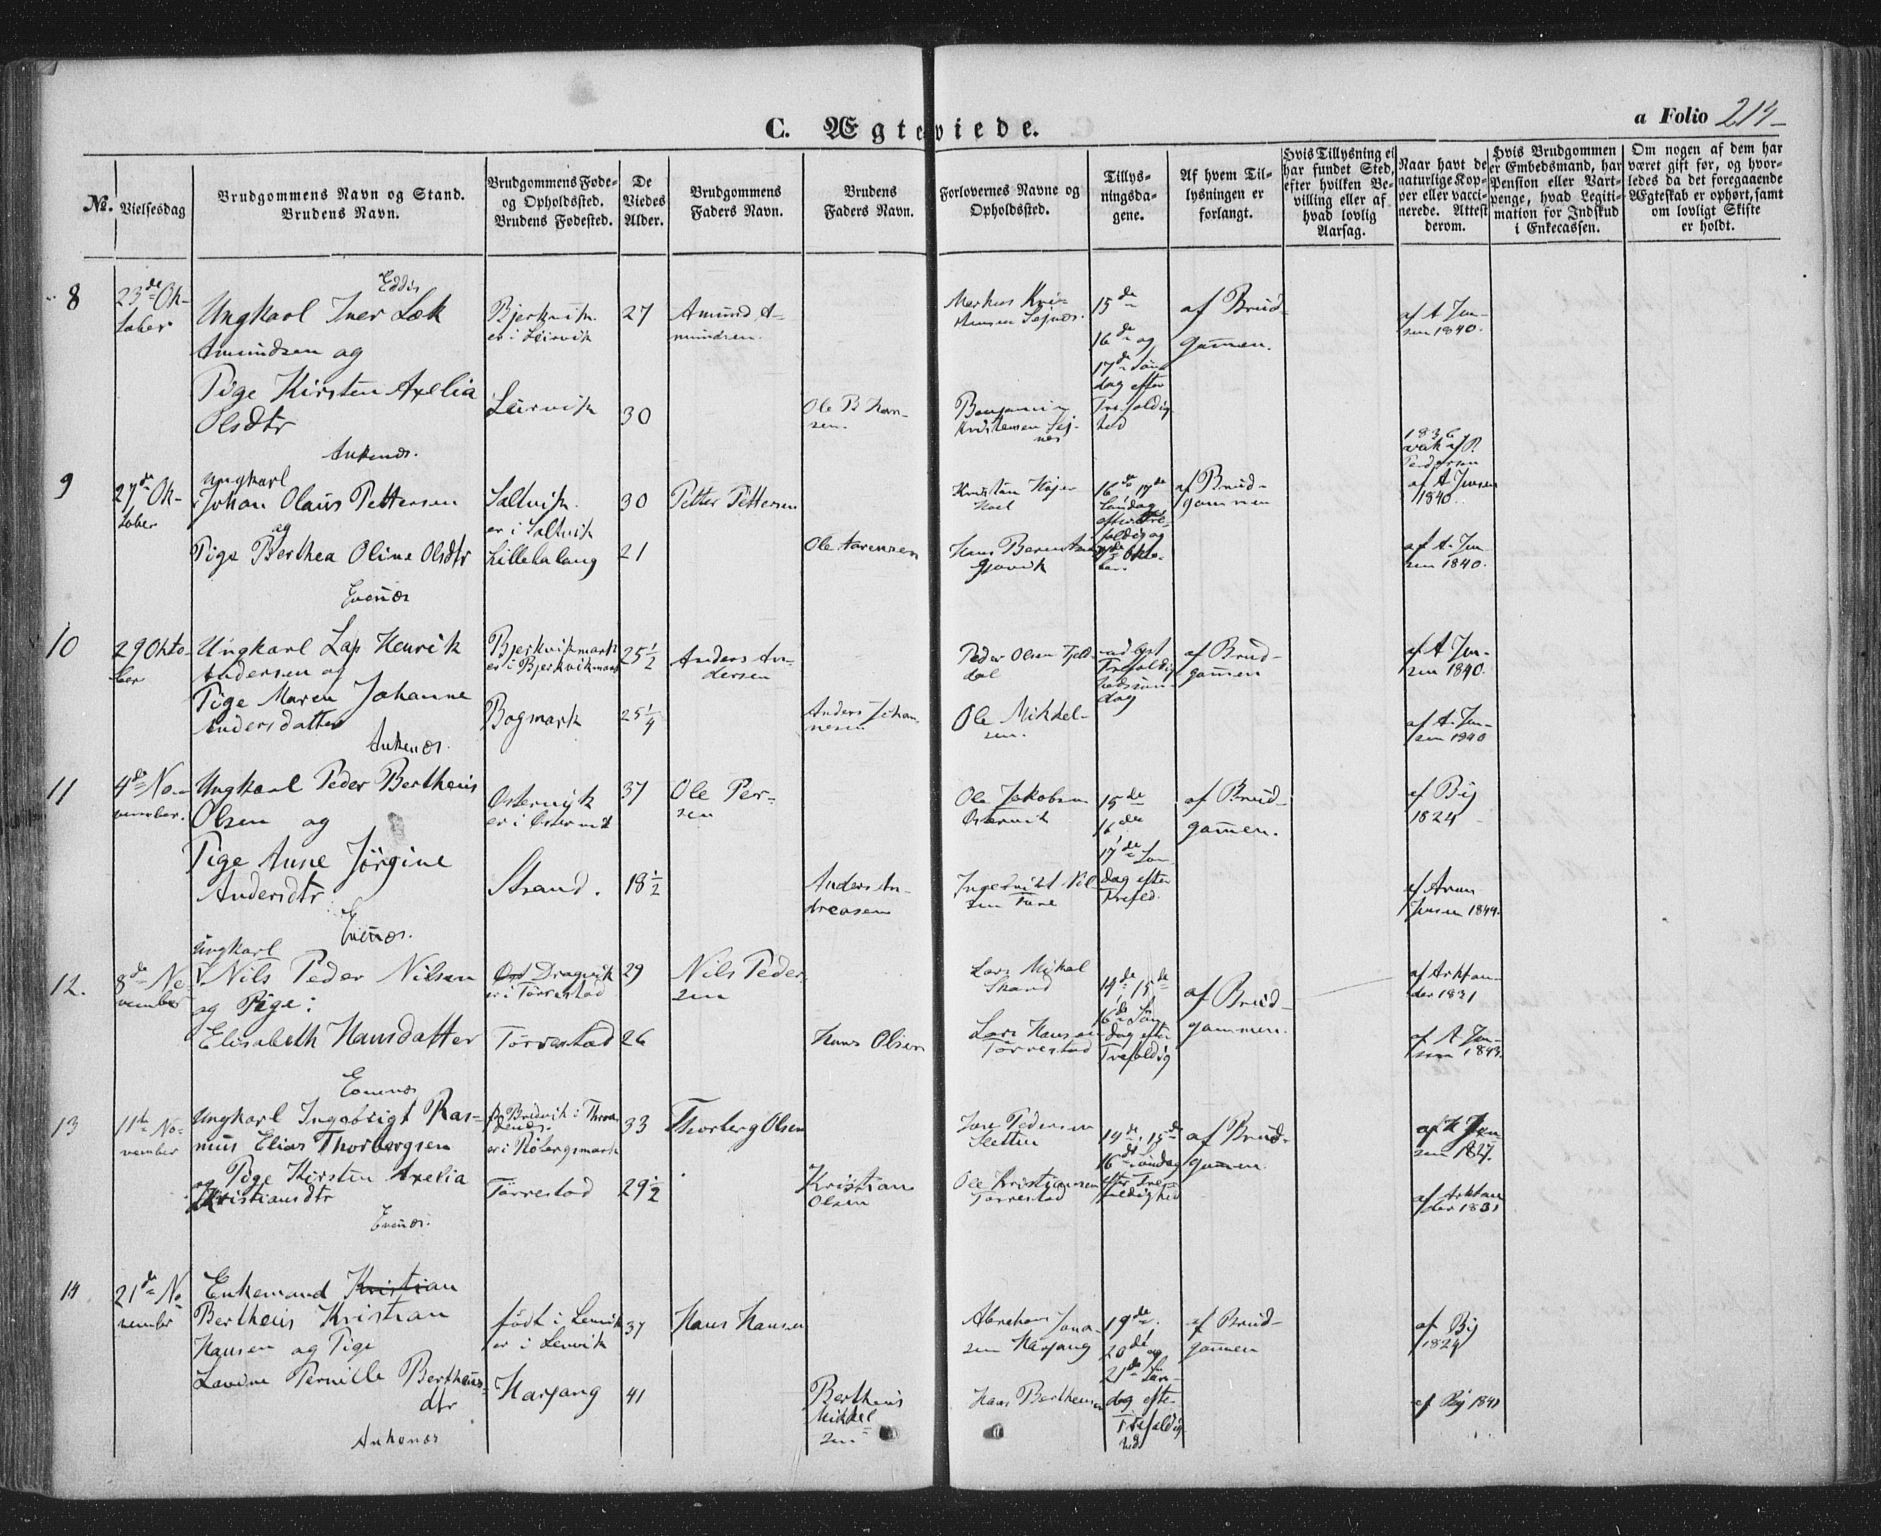 C. Ægteviede.
a Folio 214
No.
Vielsesdag
Brudgommens Navn og Stand.
Brudens Navn.
Brudgommens Føde-
og Opholdssted.
Brudens Fødested.
De
Viedes
Alder.
Brudgommens
Faders Navn.
Brudens
Faders Navn.
Forlovernes Navne og
Opholdssted.
Tillys-
ningsda-
gene.
Af hvem Til-
lysningen er
forlangt.
Hvis Tillysning ei
har fundet Sted,
efter hvilken Be-
villing eller af
hvad lovlig
Aarsag.
Naar havt de
naturlige Kop-
per eller vacci-
nerede. Attest
derom.
Hvis Brudgommen
er Embedsmand, har
Pension eller Vart-
penge, hvad Legiti-
mation for Indskud
i Enkecassen.
Om nogen af dem har
været gift før, og hvor-
ledes da det foregaaende
Ægteskab er ophørt, samt
om lovligt Skifte
er holdt.
8
23de Ok-
tober
Ungkarl Iver Læk
Amundsen og
Pige Kirsten Axelia
Olsdtr
Ankenæs.
Bjerkvik.
er i Leirvik
Leirvik
27
30
Amund A-
mundsen.
Ole B Han-
sen.
Markus Kri-
stensen
Benjamin
Kristensen
15de
16de og
17de Søn
dag efter
Trefoldig
hed
af Brud-
gommen.
af A Jen-
sen 1840.
1836
9
27de Ok-
tober
Ungkarl
Johan Olaus Pettersen
og
Pige Berthea Oline Olsdtr
Evenæs
Saltvik.
er i Saltvik
Lillebalang
30
21
Petter Pettersen
Ole Sørensen
Hans Berentsen
16de 17de
Søndag
af Brud-
gommen
af A Jensen
1840.
af A. Jen-
sen 1840.
10
29 Okto-
ber
Ungkarl Lap Henrik
Andersen og
Pige Maren Johanne
Andersdatter
Ankenæs.
Bjerkvikmark
er i Bjerkvikmark
Bogmark
25 1/2
25 1/4
Anders An-
dersen
Anders Johan-
nesen
Peder Olsen Fjeld-
dal
Ole Mikkel-
sen.
Trefoldig
hedssøn-
dag
af Brud-
gommen
af A Jen-
sen 1840.
af A. Jen-
sen 1840
11
4de No-
vember.
Ungkarl Peder Bertheus
Olsen og
Pige Anne Jørgine
Andersdtr
Evenæs.
Østervik
er i Østervik
Strand.
37
18 1/2
Ole Per-
sen
Anders An-
dreasen
Ole Jakobsen
Østervik
Ingebrikt Nil-
sen
15de
16de
17de Søn-
dag efter
Trefold.
af Brud-
gommen.
af Bij
1824
af Aron
Jensen 1844.
12.
8de No-
vember
Ungkarl
Nils Peder Nilsen
og Pige:
Elisabeth Hansdatter
Evenæs
Dragvik
er i Tørrestad
Tørrestad
29
26
Nils Peder
sen
Hans Olsen
Lars Mikal
Strand
Lars Hansen
Tørrestad
14de, 15de
16de Søn
dag efter
Trefoldig
af Brud-
gommen.
af Arktan-
der 1831
af A Jen-
sen 1843.
13
11te No-
vember
Ungkarl Ingebrigt Ras-
mus Elias Thorbergsen
og Pige Kirsten Axelia
Kristiansdtr
Evenæs.
Tørrestad
33
29 1/2
Thorberg Olsen
Kristian
Olsen
Pedersen
Sletten
Ole Kristiansen
Tørrestad
14de, 15de
16de Søndag
efter Tre-
foldighed
af Brud-
gommen.
af Arktan
der 1831
14
21de No-
vember
Enkemand Kristian
Bertheus Kristian
Hansen og Pige
Lavine Pernille Bertheus-
dtr
Ankenæs
født i Lervik
er i Lervik
Harjang
37
41
Hans Hansen
Bertheus
Mikkel
sen
Abraham Jona-
sen Harjang
Hans Bertheusen
19de,
20de og
21de Søn-
dag efter
Trefoldig
hed
af Brud-
gommen
af Bij
1824